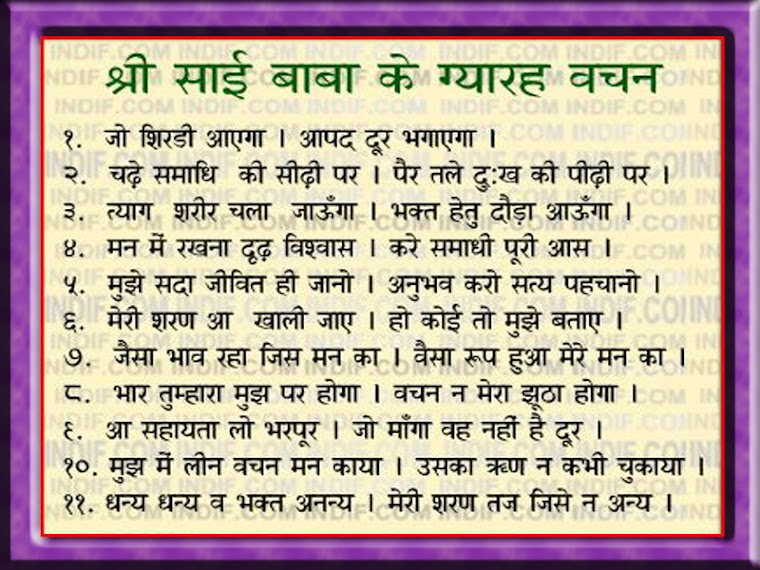 श्री साईं बाबा के ग्यारह वचन
१. जो शिरडी आएगा । आपद दूर भगाएगा ।
२. चढ़े समाधि की सीढ़ी पर । पैर तले दुःख की पीढ़ी पर ।
३. त्याग शरीर चला जाऊँगा । भक्त हेतु दौड़ा आऊँगा ।
४. मन में रखना दृढ़ विश्वास । करे समाधी पूरी आस ।
५. मुझे सदा जीवित ही जानो । अनुभव करो सत्य पहचानो ।
६. मेरी शरण आ खाली जाए । हो कोई तो मुझे बताए ।
७. जैसा भाव रहा जिस मन का । वैसा रूप हुआ मेरे मन का ।
८. भार तुम्हारा मुझ पर होगा । वचन न मेरा झूठा होगा ।
९. आ सहायता लो भरपूर । जो माँगा वह नहीं है दूर ।
१०. मुझ में लीन वचन मन काया । उसका ऋण न कभी चुकाया ।
११. धन्य धन्य व भक्त अनन्य । मेरी शरण तज जिसे न अन्य ।